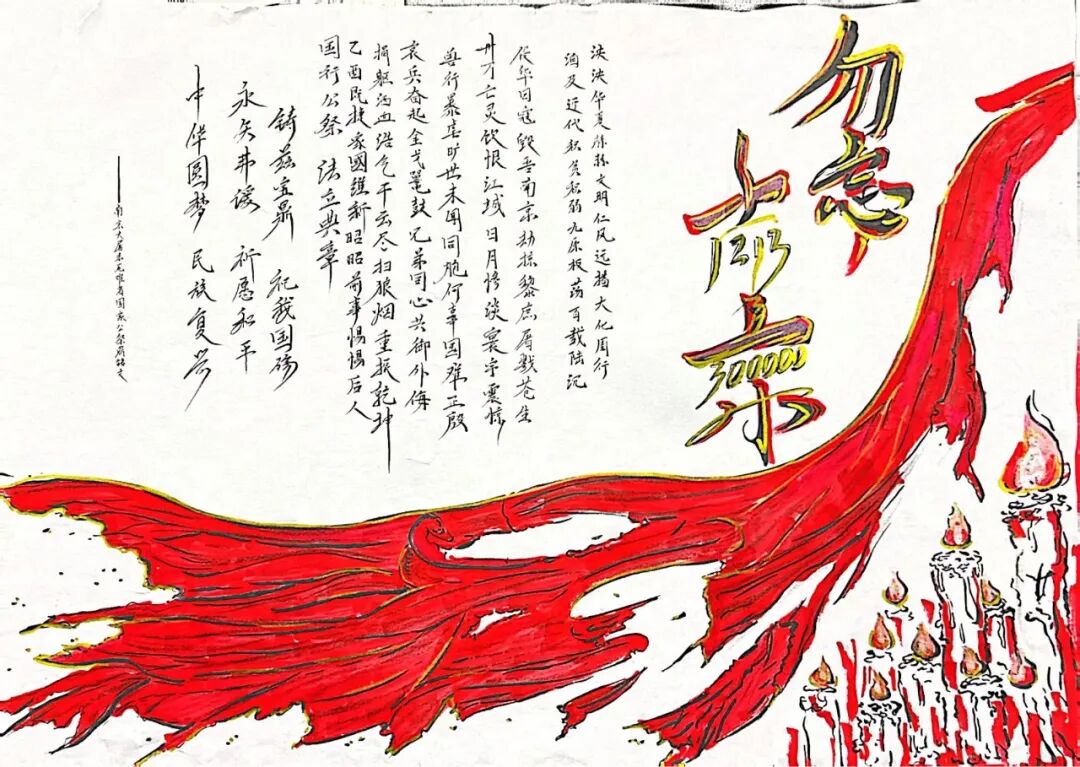 勿忘
南京
1213
300000
泱泱华夏赫赫文明仁风远播大化周行
洎及近代积贫积弱九原板荡百载陆沉
侵华日寇毁吾南京劫掠黎庶屠戮苍生
卅万亡灵饮恨江城日月惨淡寰宇震惊
兽行暴虐旷世未闻同胞何辜国难正殷
哀兵奋起金戈鼍鼓兄弟同心共御外侮
捐躯洒血浩气干云尽扫狼烟重振乾坤
乙酉民捷家國維新昭昭前事惕惕后人
国行公祭 法立典章
铸兹宝鼎 祀我国殇
永矢弗谖 祈愿和平
中华圆梦 民族复兴
——南京大屠杀死难者国家公祭鼎铭文